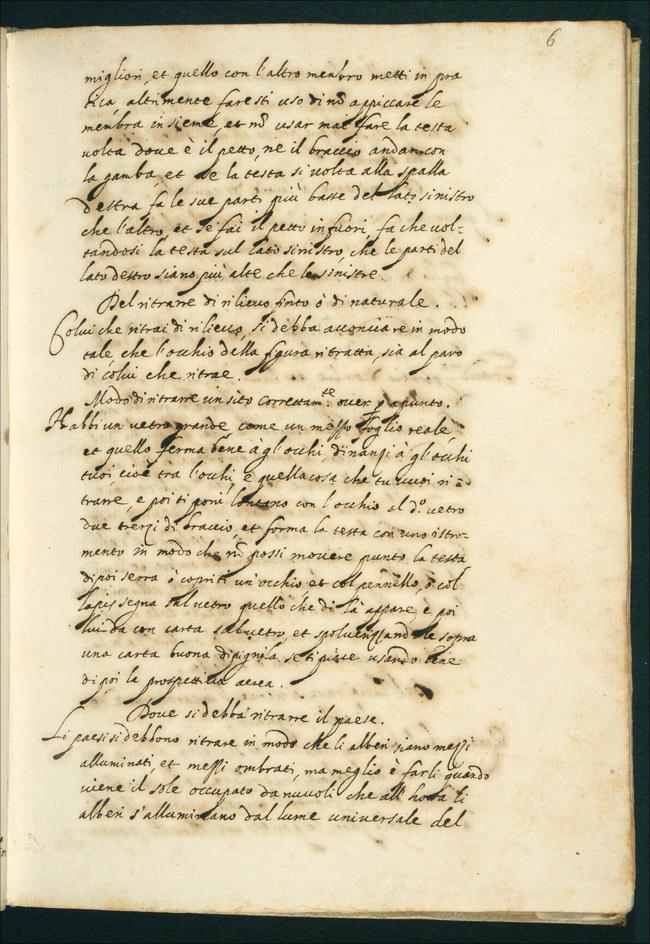 6
migliori, et quello con l'altro menbro metti in pra
tica, altrimente faresti uso di nõ appiccare le
menbra insieme, et nõ usar mai fare la testa
volta dove è il petto, ne il braccio andar con
la gamba et se la testa si volta alla spalla
destra fa le sue parti più basse del lato sinistro
che l'altro, et se fai il petto in fuori, fa che vol-
tandosi la testa sul lato sinistro, che le parti del
lato destro siano più alte che le sinistre.
Del ritrarre di rilievo finto ò di naturale.
Colui che ritrai di rilievo, si debba acconciare in modo
tale, che l'occhio della figura ritratta, sia al paro
di colui che ritrae.
Modo di ritrarre un sito correttam.te over p apunto.
Habbi un vetro grande come un messo foglio reale,
et quello ferma bene à gl'occhi, dinanzi à gl'occhi
tuoi, cioè tra l'occhi, e quella cosa che tu vuoi ri-
trarre, e poi ti poni lontano con l'occhio al d.o vetro
due terzi di braccio, et ferma la testa con uno istro-
mento in modo che nõ possi movere punto la testa
di poi serra ò copriti un'occhio, et col pennello, ò col
lapis segna sul vetro quello che di là appare, e poi
luida con carta sul vetro, et spolverizzandole sopra
una carta buona dipignila se ti piace usando bene
di poi la prospettiva aerea.
Dove si debba ritrarre il paese.
Li paesi si debbono ritrare in modo che li alberi siano messi
alluminati, et messi ombrati, ma meglio è farli quando
viene il sole occupato da nuvoli che all' hora li
alberi s'alluminano dal lume universale del